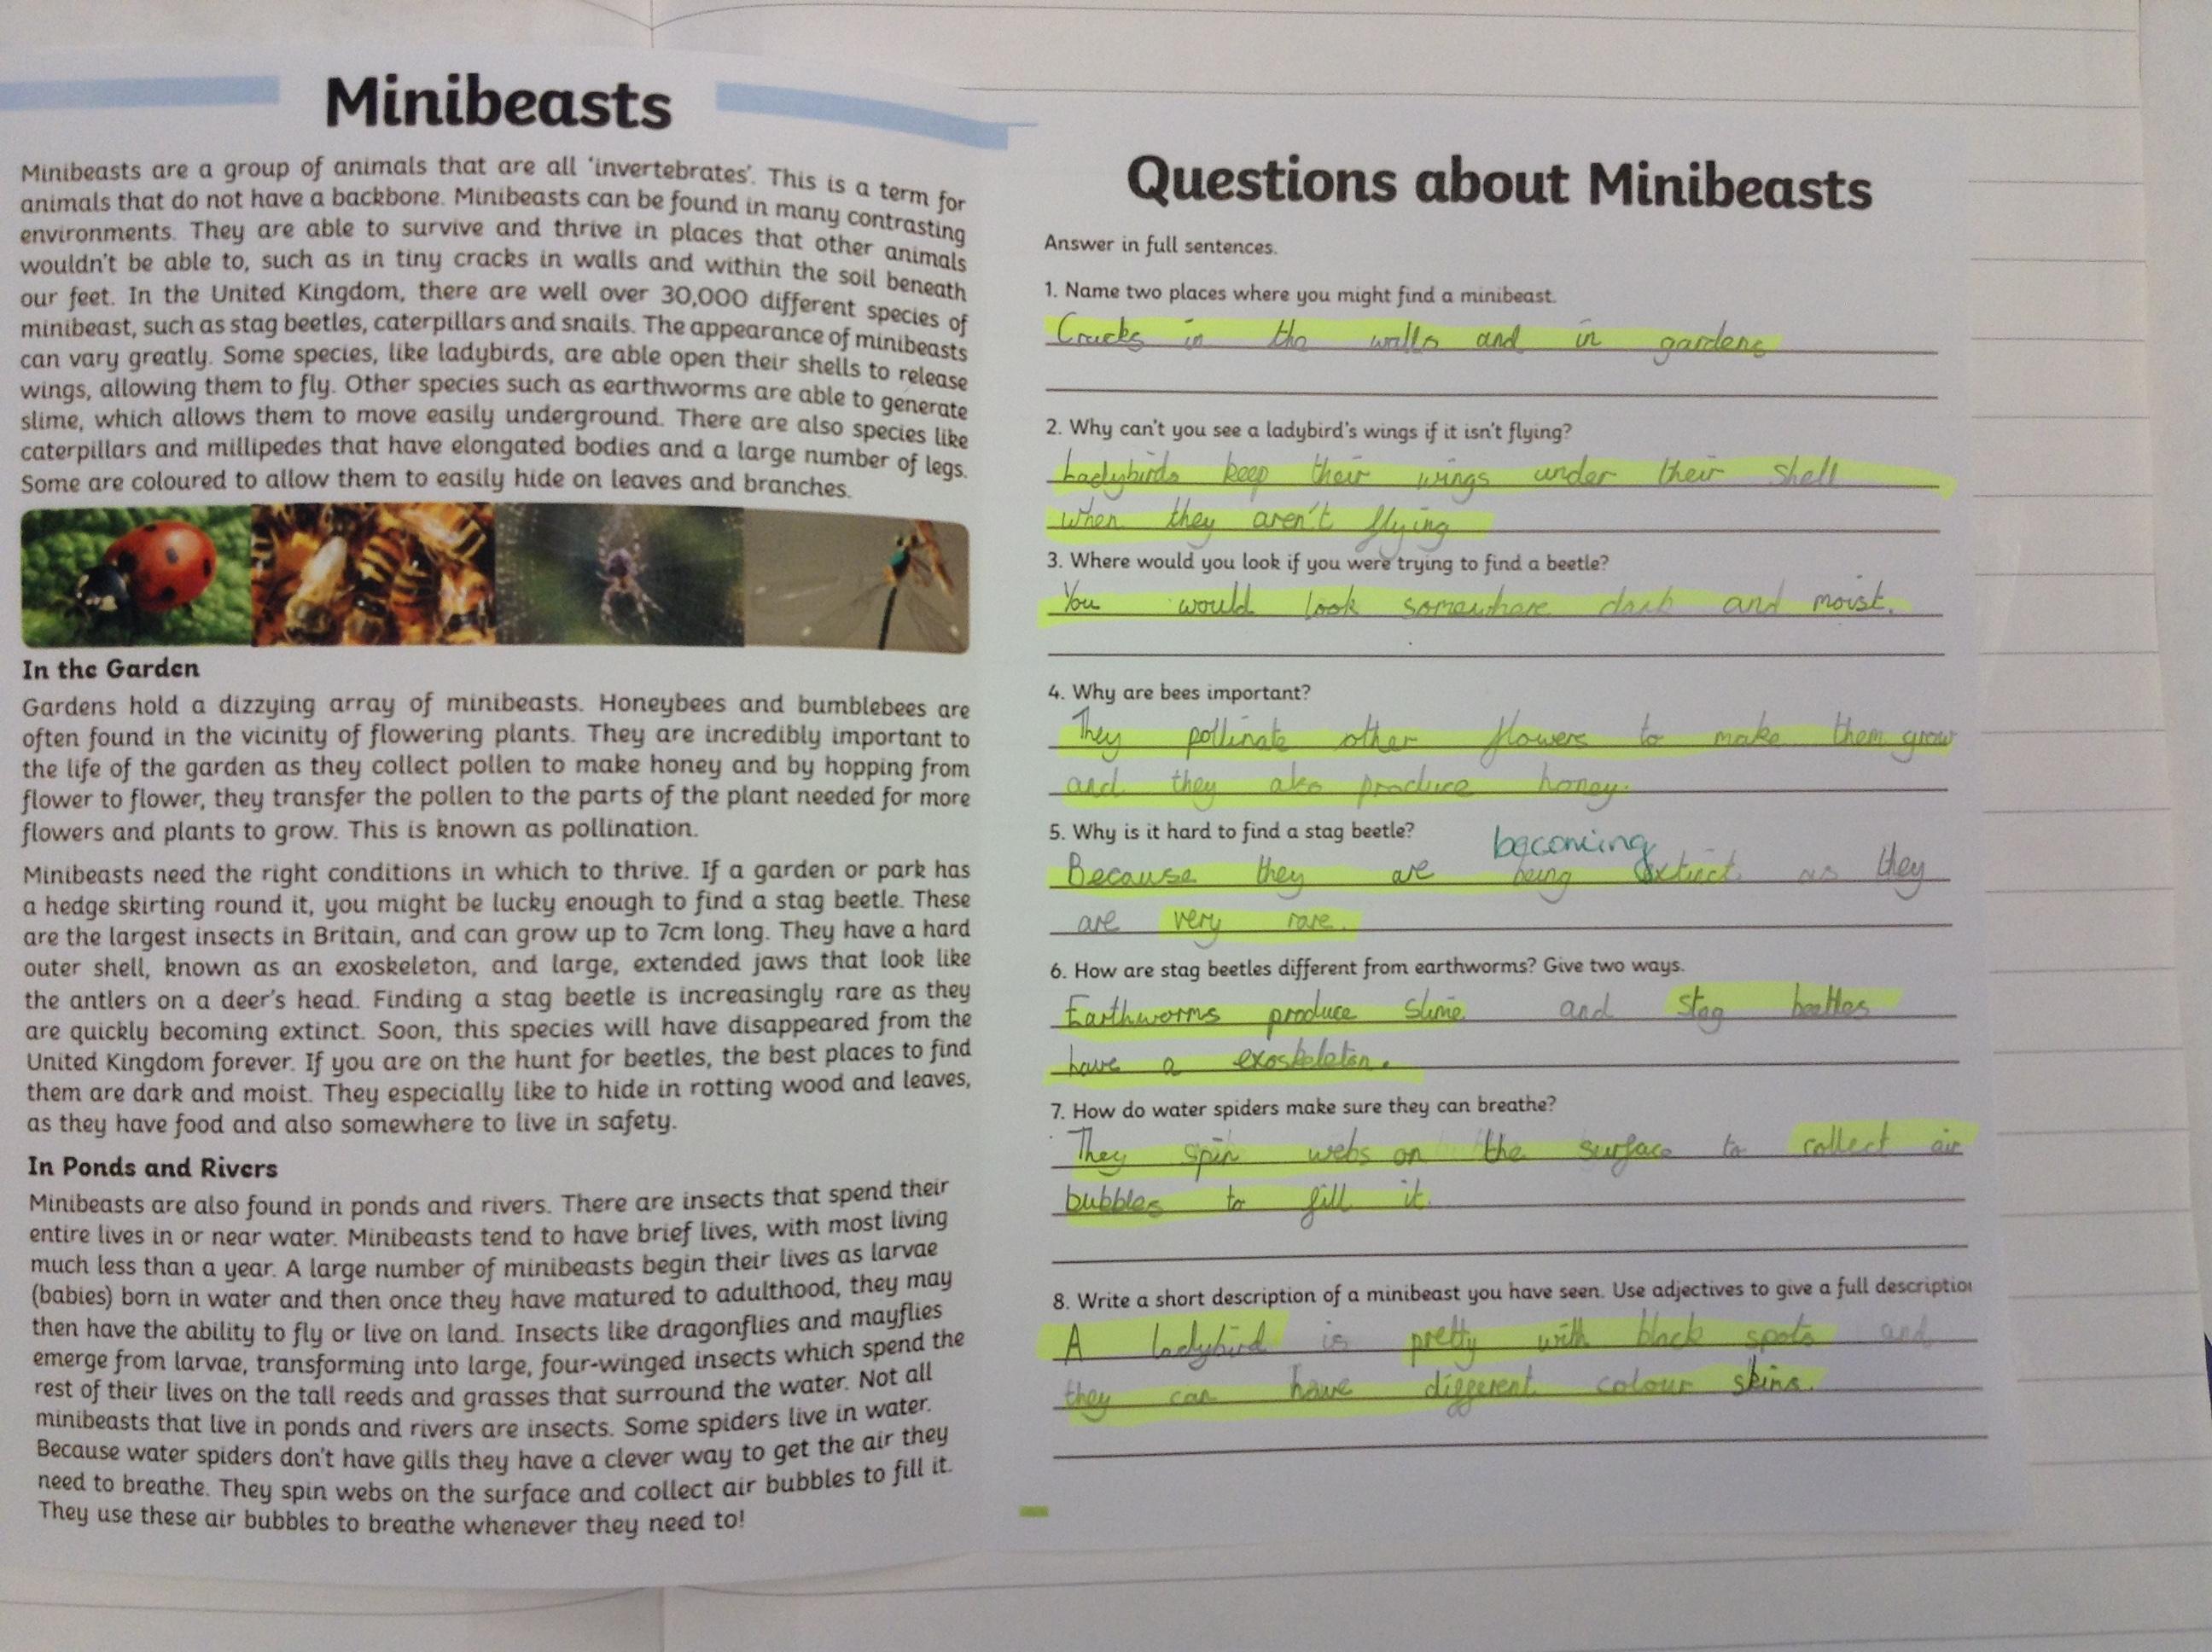 Minibeasts
Minibeasts are a group of animals that are all 'invertebrates'. This is a term for
animals that do not have a backbone. Minibeasts can be found in many contrasting
environments. They are able to survive and thrive in places that other animals
wouldn't be able to, such as in tiny cracks in walls and within the soil beneath
our feet. In the United Kingdom, there are well over 30,000 different species of
minibeast, such as stag beetles, caterpillars and snails. The appearance of minibeasts
can vary greatly. Some species, like ladybirds, are able open their shells to release
wings, allowing them to fly. Other species such as earthworms are able to generate
slime, which allows them to move easily underground. There are also species like
caterpillars and millipedes that have elongated bodies and a large number of legs.
Some are coloured to allow them to easily hide on leaves and branches.
In the Garden
Gardens hold a dizzying array of minibeasts. Honeybees and bumblebees are
often found in the vicinity of flowering plants. They are incredibly important to
the life of the garden as they collect pollen to make honey and by hopping from
flower to flower, they transfer the pollen to the parts of the plant needed for more
flowers and plants to grow. This is known as pollination.
Minibeasts need the right conditions in which to thrive. If a garden or park has
a hedge skirting round it, you might be lucky enough to find a stag beetle. These
are the largest insects in Britain, and can grow up to 7cm long. They have a hard
outer shell, known as an exoskeleton, and large, extended jaws that look like
the antlers on a deer's head. Finding a stag beetle is increasingly rare as they
are quickly becoming extinct. Soon, this species will have disappeared from the
United Kingdom forever. If you are on the hunt for beetles, the best places to find
them are dark and moist. They especially like to hide in rotting wood and leaves,
as they have food and also somewhere to live in safety.
In Ponds and Rivers
Minibeasts are also found in ponds and rivers. There are insects that spend their
entire lives in or near water. Minibeasts tend to have brief lives, with most living
much less than a year. A large number of minibeasts begin their lives as larvae
(babies) born in water and then once they have matured to adulthood, they may
then have the ability to fly or live on land. Insects like dragonflies and mayflies
emerge from larvae, transforming into large, four-winged insects which spend the
rest of their lives on the tall reeds and grasses that surround the water. Not all
minibeasts that live in ponds and rivers are insects. Some spiders live in water.
Because water spiders don't have gills they have a clever way to get the air they
need to breathe. They spin webs on the surface and collect air bubbles to fill it.
They use these air bubbles to breathe whenever they need to!
Questions about Minibeasts
Answer in full sentences.
1. Name two places where you might find a minibeast.
Cracks in the walls and in gardens
2. Why can't you see a ladybird's wings if it isn't flying?
Ladybirds keep their wings under their shell
when they aren't flying
3. Where would you look if you were trying to find a beetle?
You would look somewhere dark and moist.
4. Why are bees important?
They pollinate other flowers to make them grow
and they also produce honey.
5. Why is it hard to find a stag beetle?
becoming
Because they are being extinct as they
are very rare.
6. How are stag beetles different from earthworms? Give two ways.
Earthworms produce slime and stag beetles
have a exoskeleton.
7. How do water spiders make sure they can breathe?
They spin webs on the surface to collect air
bubbles to fill it.
8. Write a short description of a minibeast you have seen. Use adjectives to give a full description
A ladybird is pretty with black spots and
they can have different colour skins.